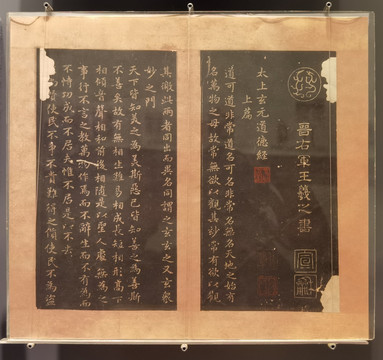 晉右軍王羲之書
太上玄元道德經
上篇
道可道非常道名可名非常名無名天地之始有
名萬物之母故常無欲以觀其妙常有欲以觀
其徼此兩者同出而異名同謂之玄玄之又玄衆
妙之門
天下皆知美之為美斯惡已皆知善之為善斯
不善矣故有無相生難易相成長短相形高下
相傾音聲相和前後相隨是以聖人處無為之
事行不言之教萬物作焉而不辭生而不有為而
不恃功成而不居夫惟不居是以不去
使民不爭不貴難得之貨使民不為盜